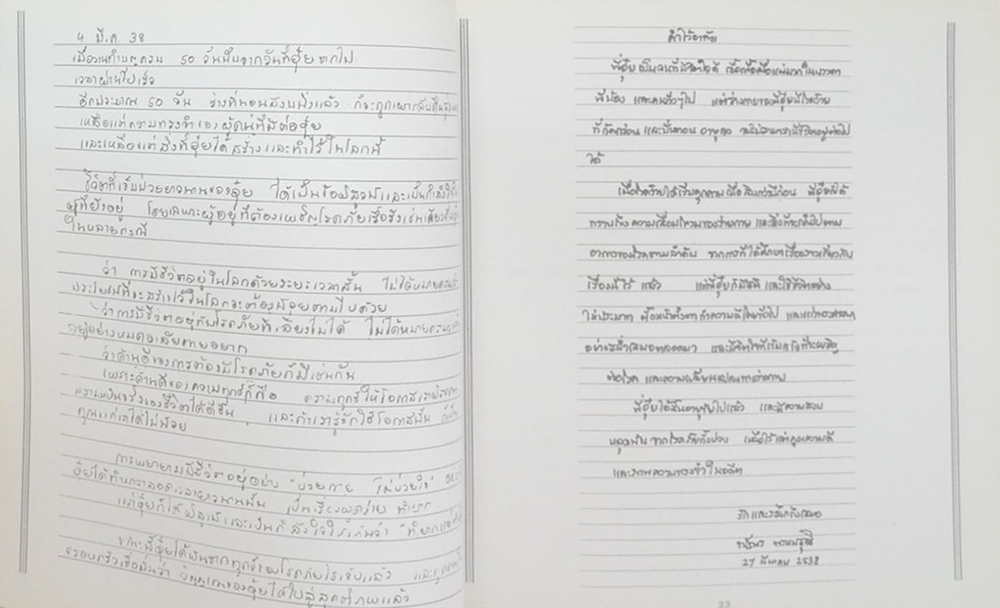 4 มี.ค. 38
เมื่อวานทำบุญครบ 50 วันนับจากวันที่อุ๋ยจากไป
เวลาผ่านไปเร็ว
อีกประมาณ 50 วัน ร่างที่นอนสงบนิ่งแล้ว ก็จะถูกเผากลับคืนสู่
เหลือแต่ความทรงจำของผู้คนที่มีต่ออุ๋ย
และเหลือแต่สิ่งที่อุ๋ยได้สร้างและทำไว้ในโลกนี้
ชีวิตที่เจ็บป่วยยาวนานของอุ๋ย ได้เป็นข้อพิสูจน์และเป็นกำลังใจให้
ผู้ที่ยังอยู่ โดยเฉพาะผู้อยู่ที่ต้องเผชิญโรคภัยเรื้อรังเช่นเดียว
ในหลายกรณี
ว่า การมีชีวิตอยู่ในโลกด้วยระยะเวลาสั้น ไม่ได้หมายความว่า
ประโยชน์ที่จะสร้างไว้ในโลกจะต้องน้อยตามไปด้วย
ว่าการมีชีวิตอยู่กับโรคภัยที่เลี่ยงไม่ได้ ไม่ได้หมายความ
อยู่อย่างหมดอาลัยตายอยาก
ว่าด้านดีของการต้องมีโรคภัยก็มีเช่นกัน
เพราะด้านดีของความทุกข์ก็คือ ความทุกข์ให้โอกาสเรา
ความเป็นจริงของชีวิตได้ดีขึ้น และถ้าเรารู้จักใช้โอกาสนั้น ก็เป็น
คุณแก่เราได้ไม่น้อย
การพยายามมีชีวิตอยู่อย่าง "ป่วยกาย ไม่ป่วยใจ"
อุ๋ยได้ทำมาตลอดเวลายาวนานนั้น เป็นเรื่องพูดง่าย ทำยาก
แต่อุ๋ยก็ได้พิสูจน์และเป็นกำลังใจให้เห็นว่า "ทำยาก
ขณะนี้อุ๋ยได้พ้นจากทุกข์ของโรคภัยไข้เจ็บแล้ว และ
ครอบครัวเชื่อมั่นว่า วิญญาณของอุ๋ยได้ไปสู่สุคติภพแล้ว
คำไว้อาลัย
พี่อุ๋ยเป็นคนที่มีจิตใจดี เอื้อเฟื้อเผื่อแผ่มากในบรรดา
พี่น้อง และคนทั่วๆไป แต่ร่างกายของพี่อุ๋ยมีโรคร้าย
ที่กัดกร่อน และบั่นทอน อายุ จนไม่สามารถมีชีวิตอยู่ต่อไป
ได้
เมื่อโรคร้ายได้เริ่มคุกคาม พี่อุ๋ยก็ได้
ทราบถึงความเสื่อมโทรมของร่างกาย และสิ่งที่จะเกิดไปตาม
อาการของโรคตามลำดับ จากการที่ได้ศึกษาเรื่องราวเกี่ยวกับ
เรื่องนี้ไว้ แล้ว แต่พี่อุ๋ยก็มีสติ และใช้ชีวิตอย่าง
ไม่ประมาท ทำความดีโดยทั่วไป และแก่พระศาสนา
อย่างสม่ำเสมอตลอดมา และมีจิตใจที่เข้มแข็งที่จะเผชิญ
ต่อโรค และความเจ็บปวดทางร่างกาย
พี่อุ๋ยได้สิ้นอายุขัยไปแล้ว และมีความสงบ
หลุดพ้น จากโรคภัยทั้งปวง เหลือไว้แต่คุณความดี
และภาพความทรงจำในอดีต
รักและระลึกถึงเสมอ
27 มีนาคม 2538
23